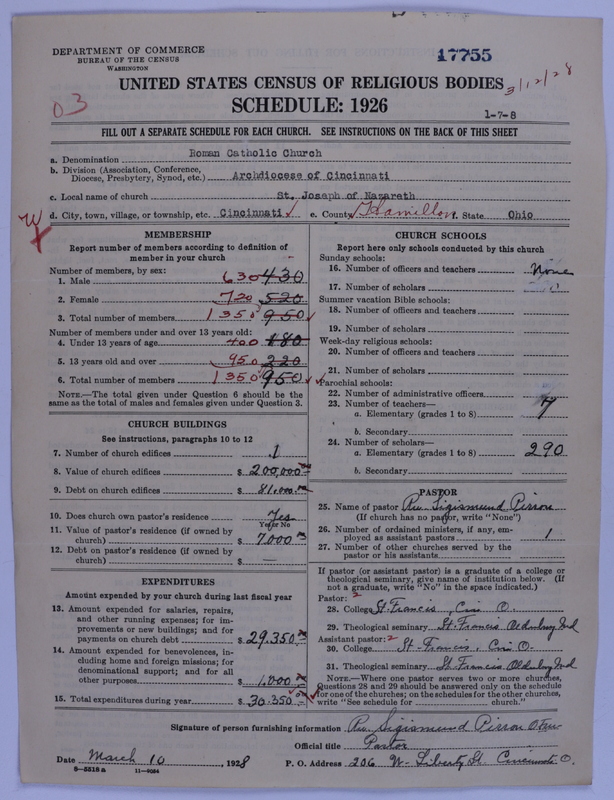 DEPARTMENT OF COMMERCE
BUREAU OF THE CENSUS
WASHINGTON
17755
UNITED STATES CENSUS OF RELIGIOUS BODIES
3/12/28
SCHEDULE: 1926
03
1-7-8
FILL OUT A SEPARATE SCHEDULE FOR EACH CHURCH. SEE INSTRUCTIONS ON THE BACK OF THIS SHEET
a. Denomination Roman Catholic Church
b. Division (Association, Conference, Diocese, Presbytery, Synod, etc.) Archdiocese of Cincinnati
c. Local name of church St. Joseph of Nazareth
d. City, town, village, or township, etc. Cincinnati e. County Hamilton f. State Ohio
MEMBERSHIP
Report number of members according to definition of
member in your church
Number of members, by sex:
1. Male 630 430
2. Female 720 520
3. Total number of members 1350 950
Number of members under and over 13 years old:
4. Under 13 years of age 400 180
5. 13 years old and over 950 220
6. Total number of members 1350 950
NOTE.—The total given under Question 6 should be
same as the total of males and females given under Question 3.
CHURCH BUILDINGS
See instructions, paragraphs 10 to 12
7. Number of church edifices 1
8. Value of church edifices $ 200,000.00
9. Debt on church edifices $ 81,000.00
10. Does church own pastor's residence Yes
Yes or No
11. Value of pastor's residence (if owned by
church) $ 7000.00
12. Debt on pastor's residence (if owned by
church) $ —
EXPENDITURES
Amount expended by your church during last fiscal year
13. Amount expended for salaries, repairs,
and other running expenses; for im-
provements or new buildings; and for
payments on church debt $ 29.350.—
14. Amount expended for benevolences, in-
cluding home and foreign missions; for
denominational support; and for all
other purposes $ 1,000.—
15. Total expenditures during year $ 30.350.—
CHURCH SCHOOLS
Report here only schools conducted by this church
Sunday schools:
16. Number of officers and teachers None
17. Number of scholars
Summer vacation Bible schools:
18. Number of officers and teachers
19. Number of scholars
Week-day religious schools:
20. Number of officers and teachers
21. Number of scholars
Parochial schools:
22. Number of administrative officers
23. Number of teachers—
a. Elementary (grades 1 to 8) 7
b. Secondary
24. Number of scholars—
a. Elementary (grades 1 to 8) 290
b. Secondary
PASTOR
25. Name of pastor Rev. Sigismund Pirron
(If church has no pastor, write "None")
26. Number of ordained ministers, if any, em-
ployed as assistant pastors 1
27. Number of other churches served by the
pastor or his assistants
If pastor (or assistant pastor) is a graduate of a college or
theological seminary, give name of institution below. (If
not a graduate, write "No" in the space indicated.)
Pastor: 2
28. College St. Francis, Cin. O.
29. Theological seminary St. Francis Oldenburg Ind
Assistant pastor: 2
30. College St. Francis, Cin. O.
31. Theological seminary St. Francis Oldenburg Ind
NOTE.—Where one pastor serves two or more churches,
Questions 28 and 29 should be answered only on the schedule
for one of the churches; on the schedules for the other churches,
write "See schedule for church."
Signature of person furnishing information Rev. Sigismund Pirron O.F.M.
Official title Pastor
Date March 10, 1928 P. O. Address 206 W. Liberty St. Cincinnati O.
8-5518 a 11-9024